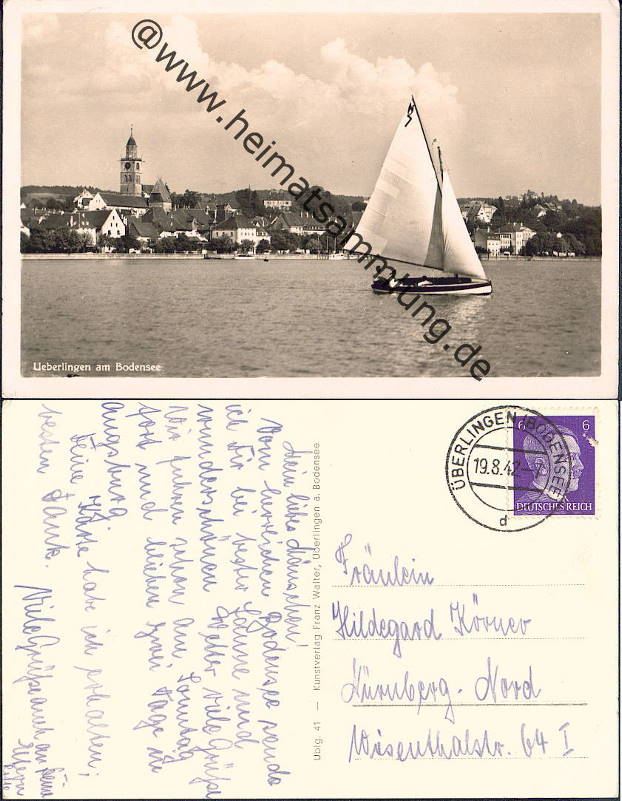 @www.heimatsammlung.de
N
7
Ueberlingen am Bodensee
ÜBERLINGEN (BODENSEE)
19.8.42
d
6 6
DEUTSCHES REICH
Mein liebes Hänschen!
Vom herrlichen Bodensee sende
ich Dir bei bester Laune und
wunderschönem Wetter viele Grüße
Wir fahren schon am Sonntag
fort und bleiben zwei Tage in
Augsburg
Deine Karte habe ich erhalten,
besten Dank.
Viele Grüße auch an Deine
Eltern
Ublg. 41 — Kunstverlag Franz Walter, Überlingen a. Bodensee.
Fräulein
Hildegard Körner
Nürnberg-Nord
Wiesenthalstr. 64 I